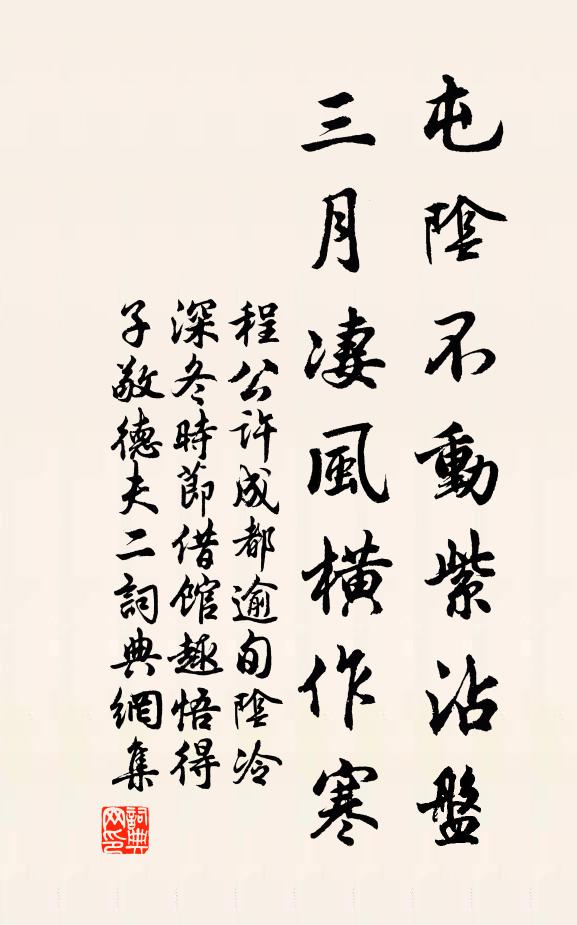 屯陰不動紫沾盤
三月淒風橫作寒
程公許成都逾旬陰冷
深冬時節借館趣悟得
子敬德夫二詞典網集
詞典網印